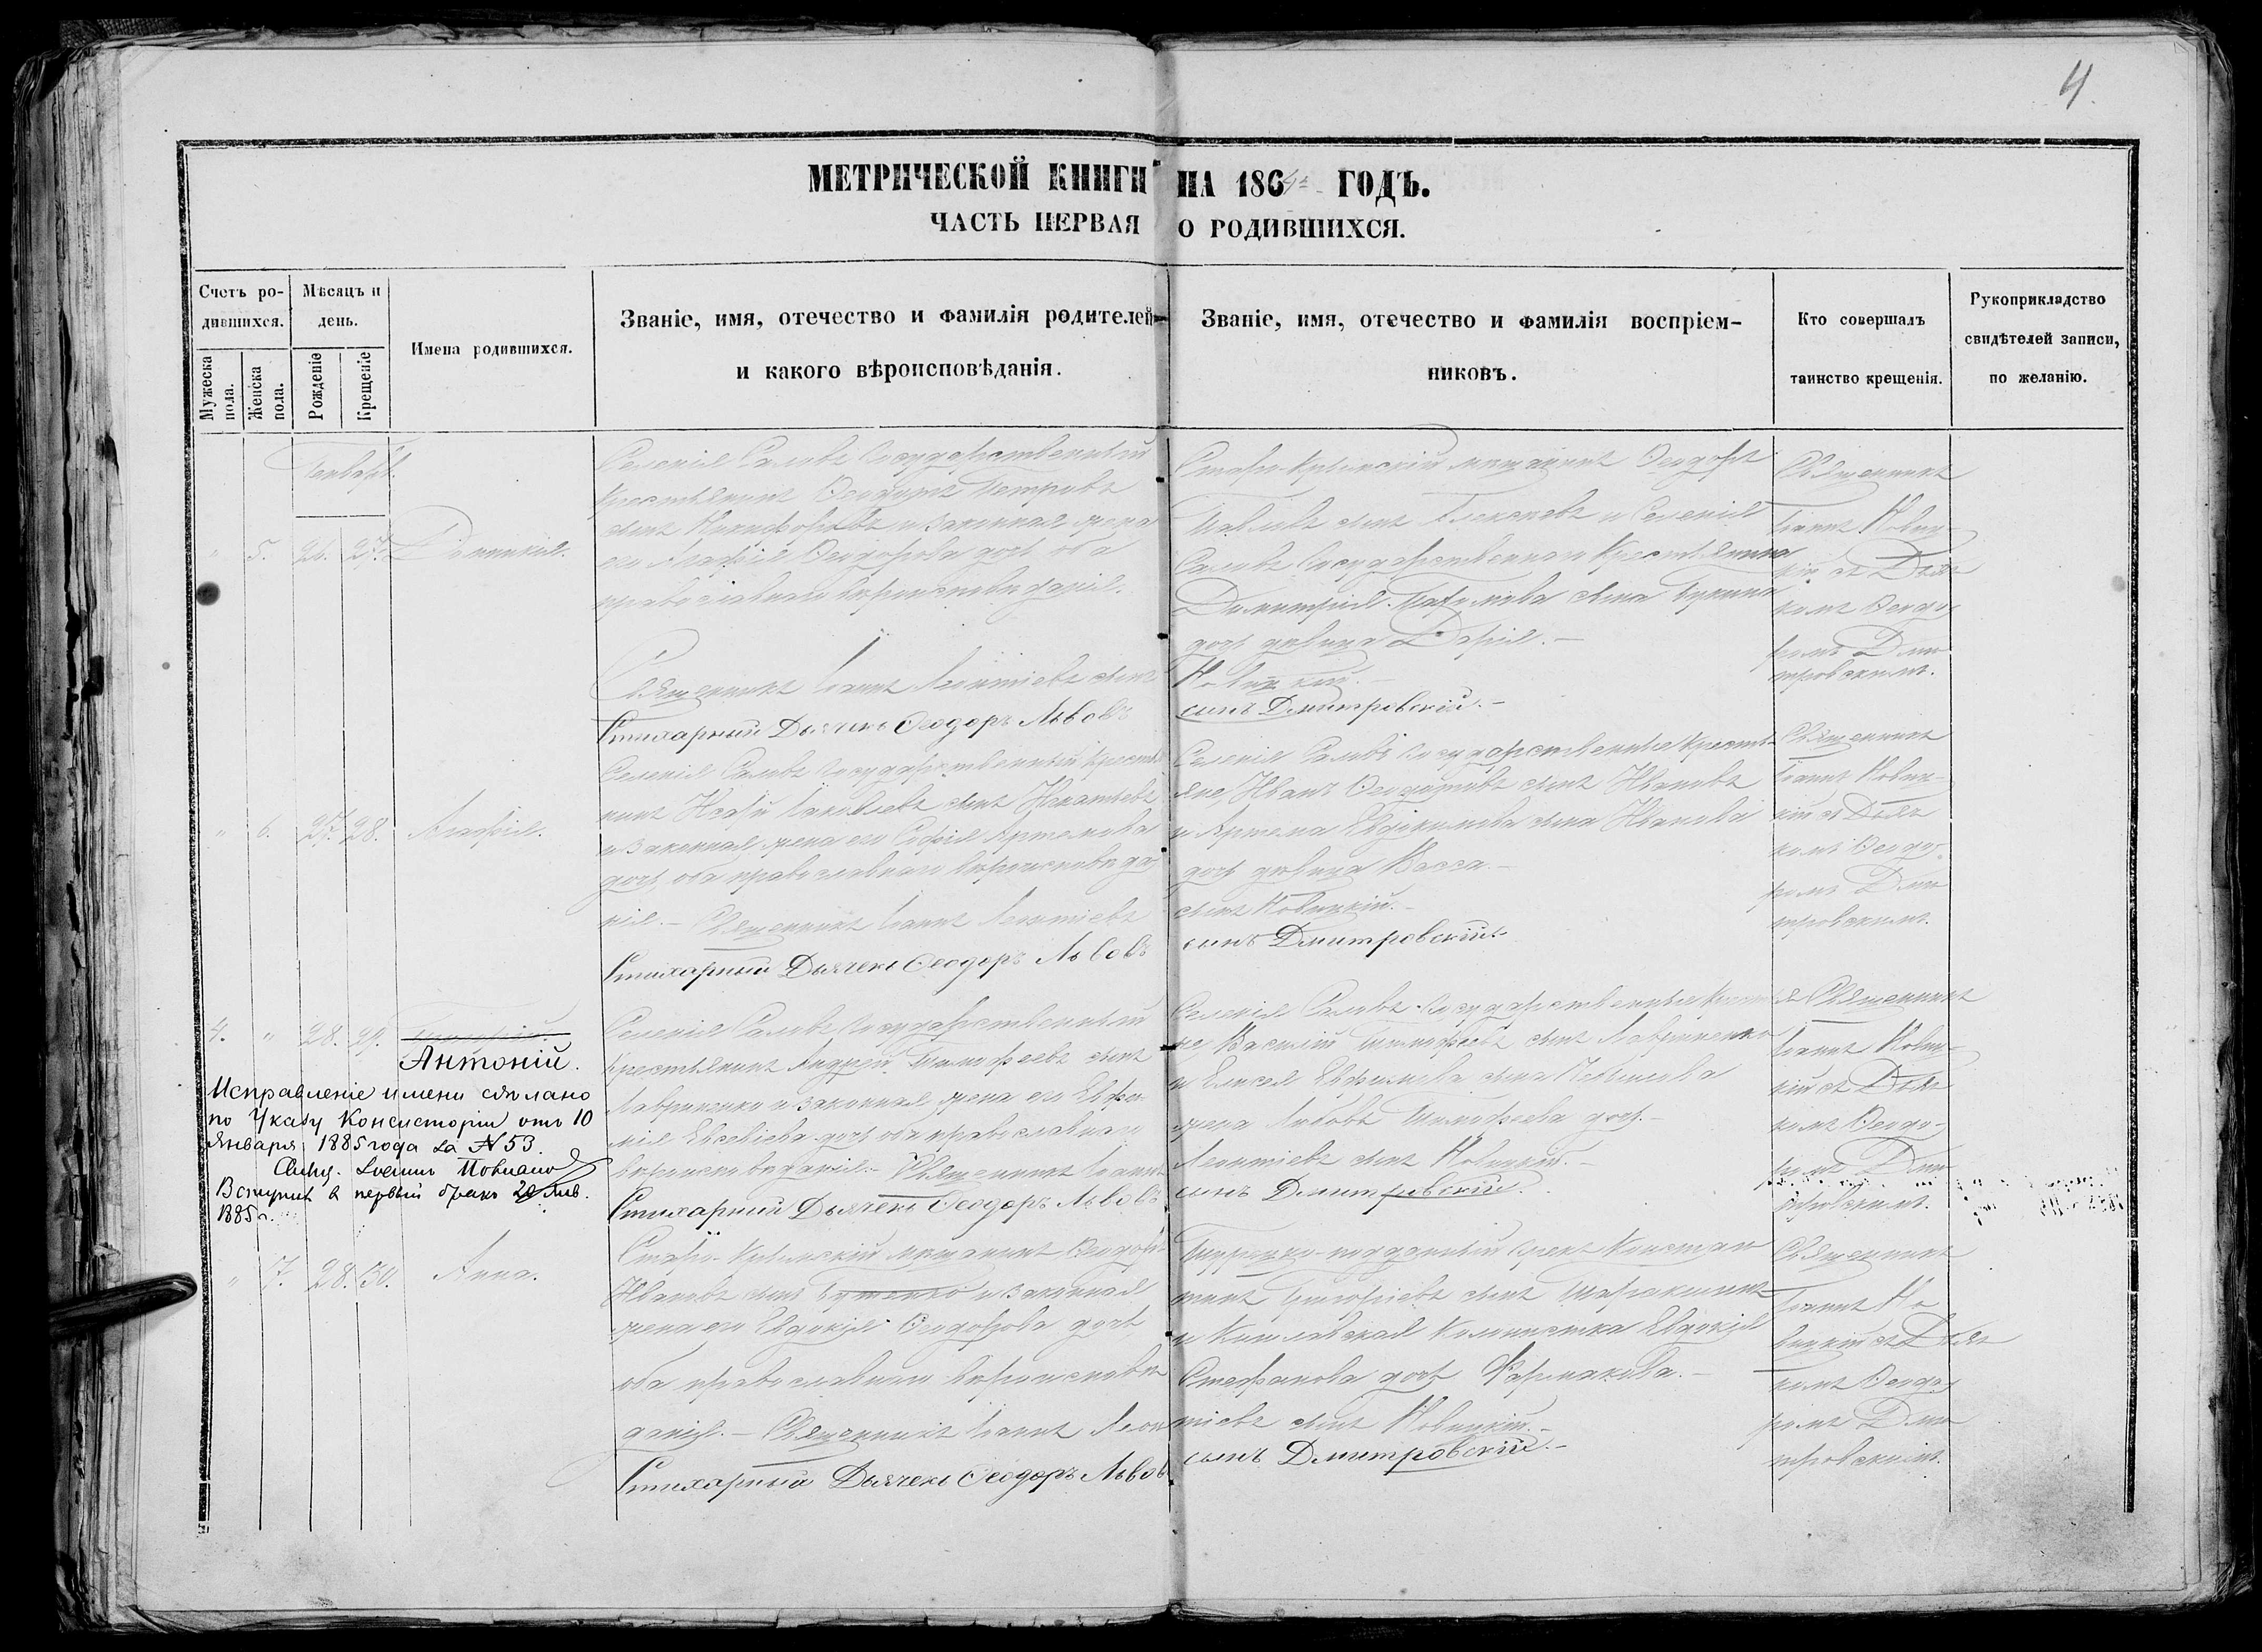 4.
МЕТРИЧЕСКОЙ КНИГИ НА 1864й ГОДЪ.
ЧАСТЬ ПЕРВАЯ О РОДИВШИХСЯ.
Счетъ ро-
дившихся.
Мужеска
пола.
Женска
пола.
Мѣсяцъ и
день.
Рожденіе
Крещеніе
Имена родившихся.
Званіе, имя, отечество и фамилія родителей
и какого вѣроисповѣданія.
Званіе, имя, отечество и фамилія воспріем-
никовъ.
Кто совершалъ
таинство крещенія.
Рукоприкладство
свидѣтелей записи,
по желанію.
Январь.
" 5. 26. 27. Домникія.
Селенія Салывъ Государственный
крестьянинъ Ѳеодоръ Петровъ
сынъ Никифоровъ и законная жена
его Агафія Ѳеодорова дочь, оба
православнаго вѣроисповѣданія.
Священникъ Іоаннъ Леонтіевъ сынъ
Стихарный Дьячекъ Ѳеодоръ Львовъ
Старо-Крымскій мѣщанинъ Ѳеодоръ
Павловъ сынъ Алексѣевъ и Селенія
Салывъ Государственнаго Крестьянина
Димитрія сына
дочь дѣвица Дарія.-
Новицкій.-
сынъ Дмитровскій.-
Священникъ
Іоаннъ Новиц-
кій съ Дьяч
комъ Ѳеодо
ромъ Дми
тровскимъ.
" 6. 27. 28. Агафія.
Селенія Салывъ Государственный крестья
нинъ Исай Іаковлевъ сынъ Игнатьевъ
и законная жена его Софія Артемова
дочь, оба православнаго вѣроисповѣда
нія.- Священникъ Іоаннъ Леонтіевъ
Стихарный Дьячекъ Ѳеодоръ Львовъ
Селенія Салывъ Государственные крестья
яне, Иванъ сынъ Ивановъ
и Артема Евдокимова сына Иванова
дочь дѣвица Васса.-
сынъ Новицкій.-
сынъ Дмитровскій.
Священникъ
Іоаннъ Новиц-
кій съ Дьяч
комъ Ѳеодо
ромъ Дми
тровскимъ.
4. " 28. 29.
Антоній.
Исправленіе имени сдѣлано
по Указу Консисторіи отъ 10
Января 1885 года за № 53.
Свящ. Іоаннъ
Вступилъ въ первый бракъ 20 Янв.
1885 г.
Селенія Салывъ Государственный
крестьянинъ Андрей Тимофеевъ сынъ
Лавриненко и законная жена его Евфи
мія Евсевіева дочь оба православнаго
вѣроисповѣданія.- Священникъ Іоаннъ
Стихарный Дьячекъ Ѳеодоръ Львовъ
Селенія Салывъ Государственные крестья
не, Василій Тимофеевъ сынъ Лавриненко
и Елисея Евфимова сына
жена Любовь Тимофеева дочь.-
Леонтіевъ сынъ Новицкій.-
сынъ Дмитровскій.
Священникъ
Іоаннъ Новиц-
кій съ Дьяч
комъ Ѳеодо-
ромъ Дми
тровскимъ.
" 7. 28. 30. Анна.
Старо-Крымскій мѣщанинъ Ѳеодоръ
Ивановъ сынъ Бутенко и законная
жена его Евдокія Ѳеодорова дочь
оба православнаго вѣроисповѣ
данія.- Священникъ Іоаннъ Леон
Стихарный Дьячекъ Ѳеодоръ Львовъ
Турецко-подданный грекъ Констан
тинъ Григоріевъ сынъ
и Кишлавская Колонистка Евдокія
Стефанова дочь Фармакова.-
тіевъ сынъ Новицкій.-
сынъ Дмитровскій.-
Священникъ
Іоаннъ Но
вицкій съ Дьяч
комъ Ѳеодо
ромъ Дми
тровскимъ.